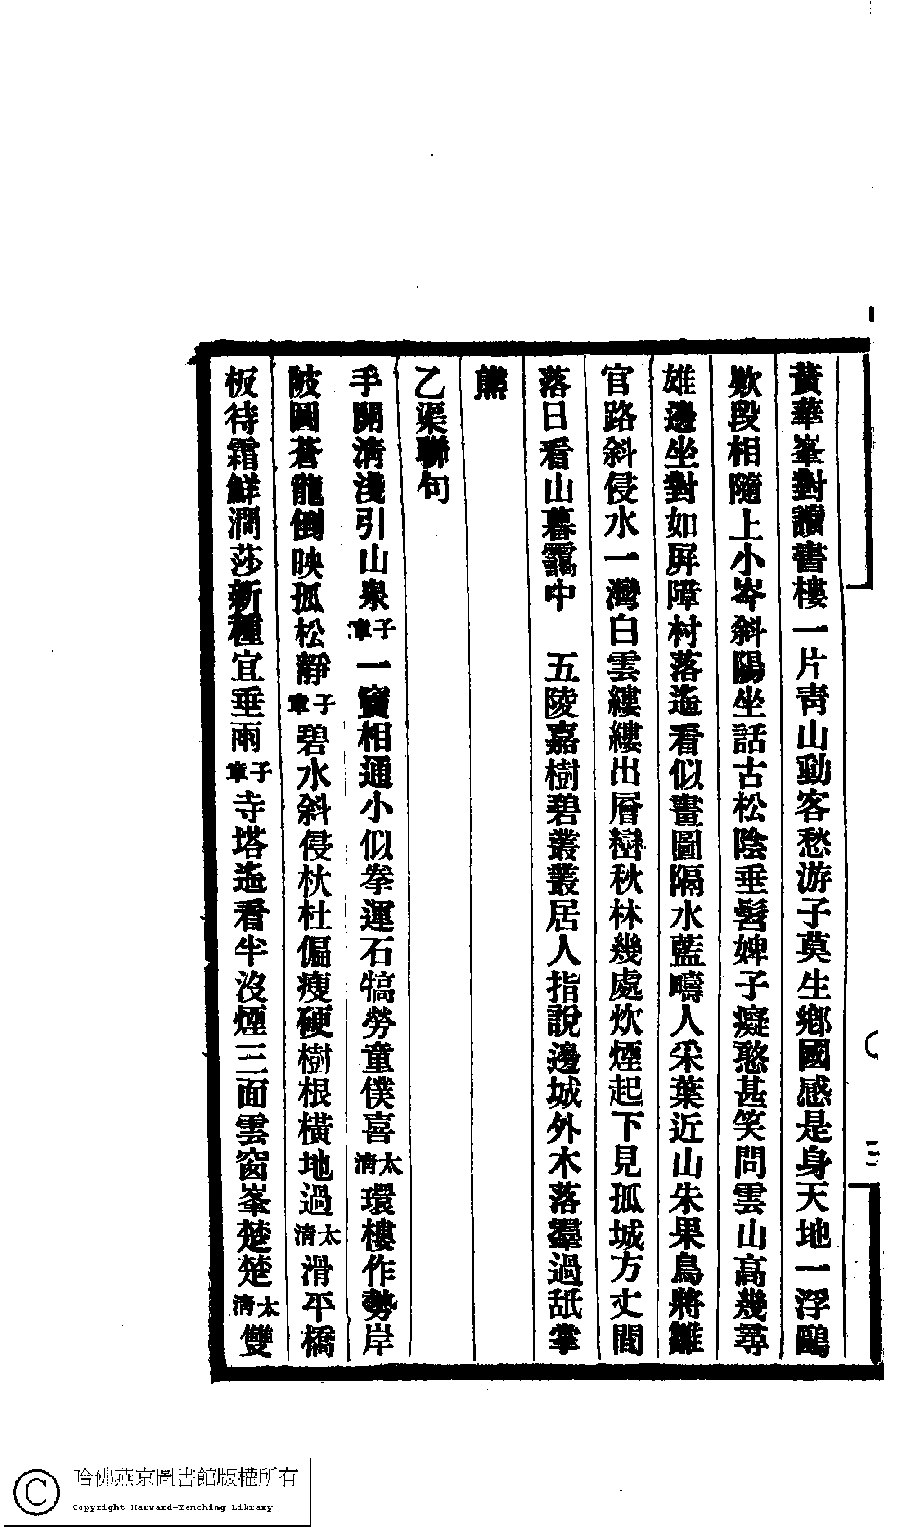 黃華峯對讀書樓一片靑山動客愁游子莫生鄕國感是身天地一浮鷗
欵段相隨上小岑斜陽坐話古松陰垂髫婢子癡憨甚笑問雲山高幾尋
雄邊坐對如屛障村落遙看似畫圖隔水藍疇人采葉近山朱果鳥將雛
官路斜侵水一灣白雲縷縷出層巒秋林幾處炊煙起下見孤城方丈間
落日看山暮靄中　五陵嘉樹碧叢叢居人指說邊城外木落羣過舐掌
熊
乙渠聯句
手開淸淺引山泉子章一竇相通小似拳運石犒勞童僕喜太淸環樓作勢岸
陂圓蒼龍倒映孤松靜子章碧水斜侵杕杜偏瘦硬樹根橫地過太淸滑平橋
板待霜鮮澗莎新種宜垂雨子章寺塔遙看半沒煙三面雲窗峯楚楚太淸雙
三
哈佛燕京圖書館版權所有
Copyright Harvard-Yenching Library